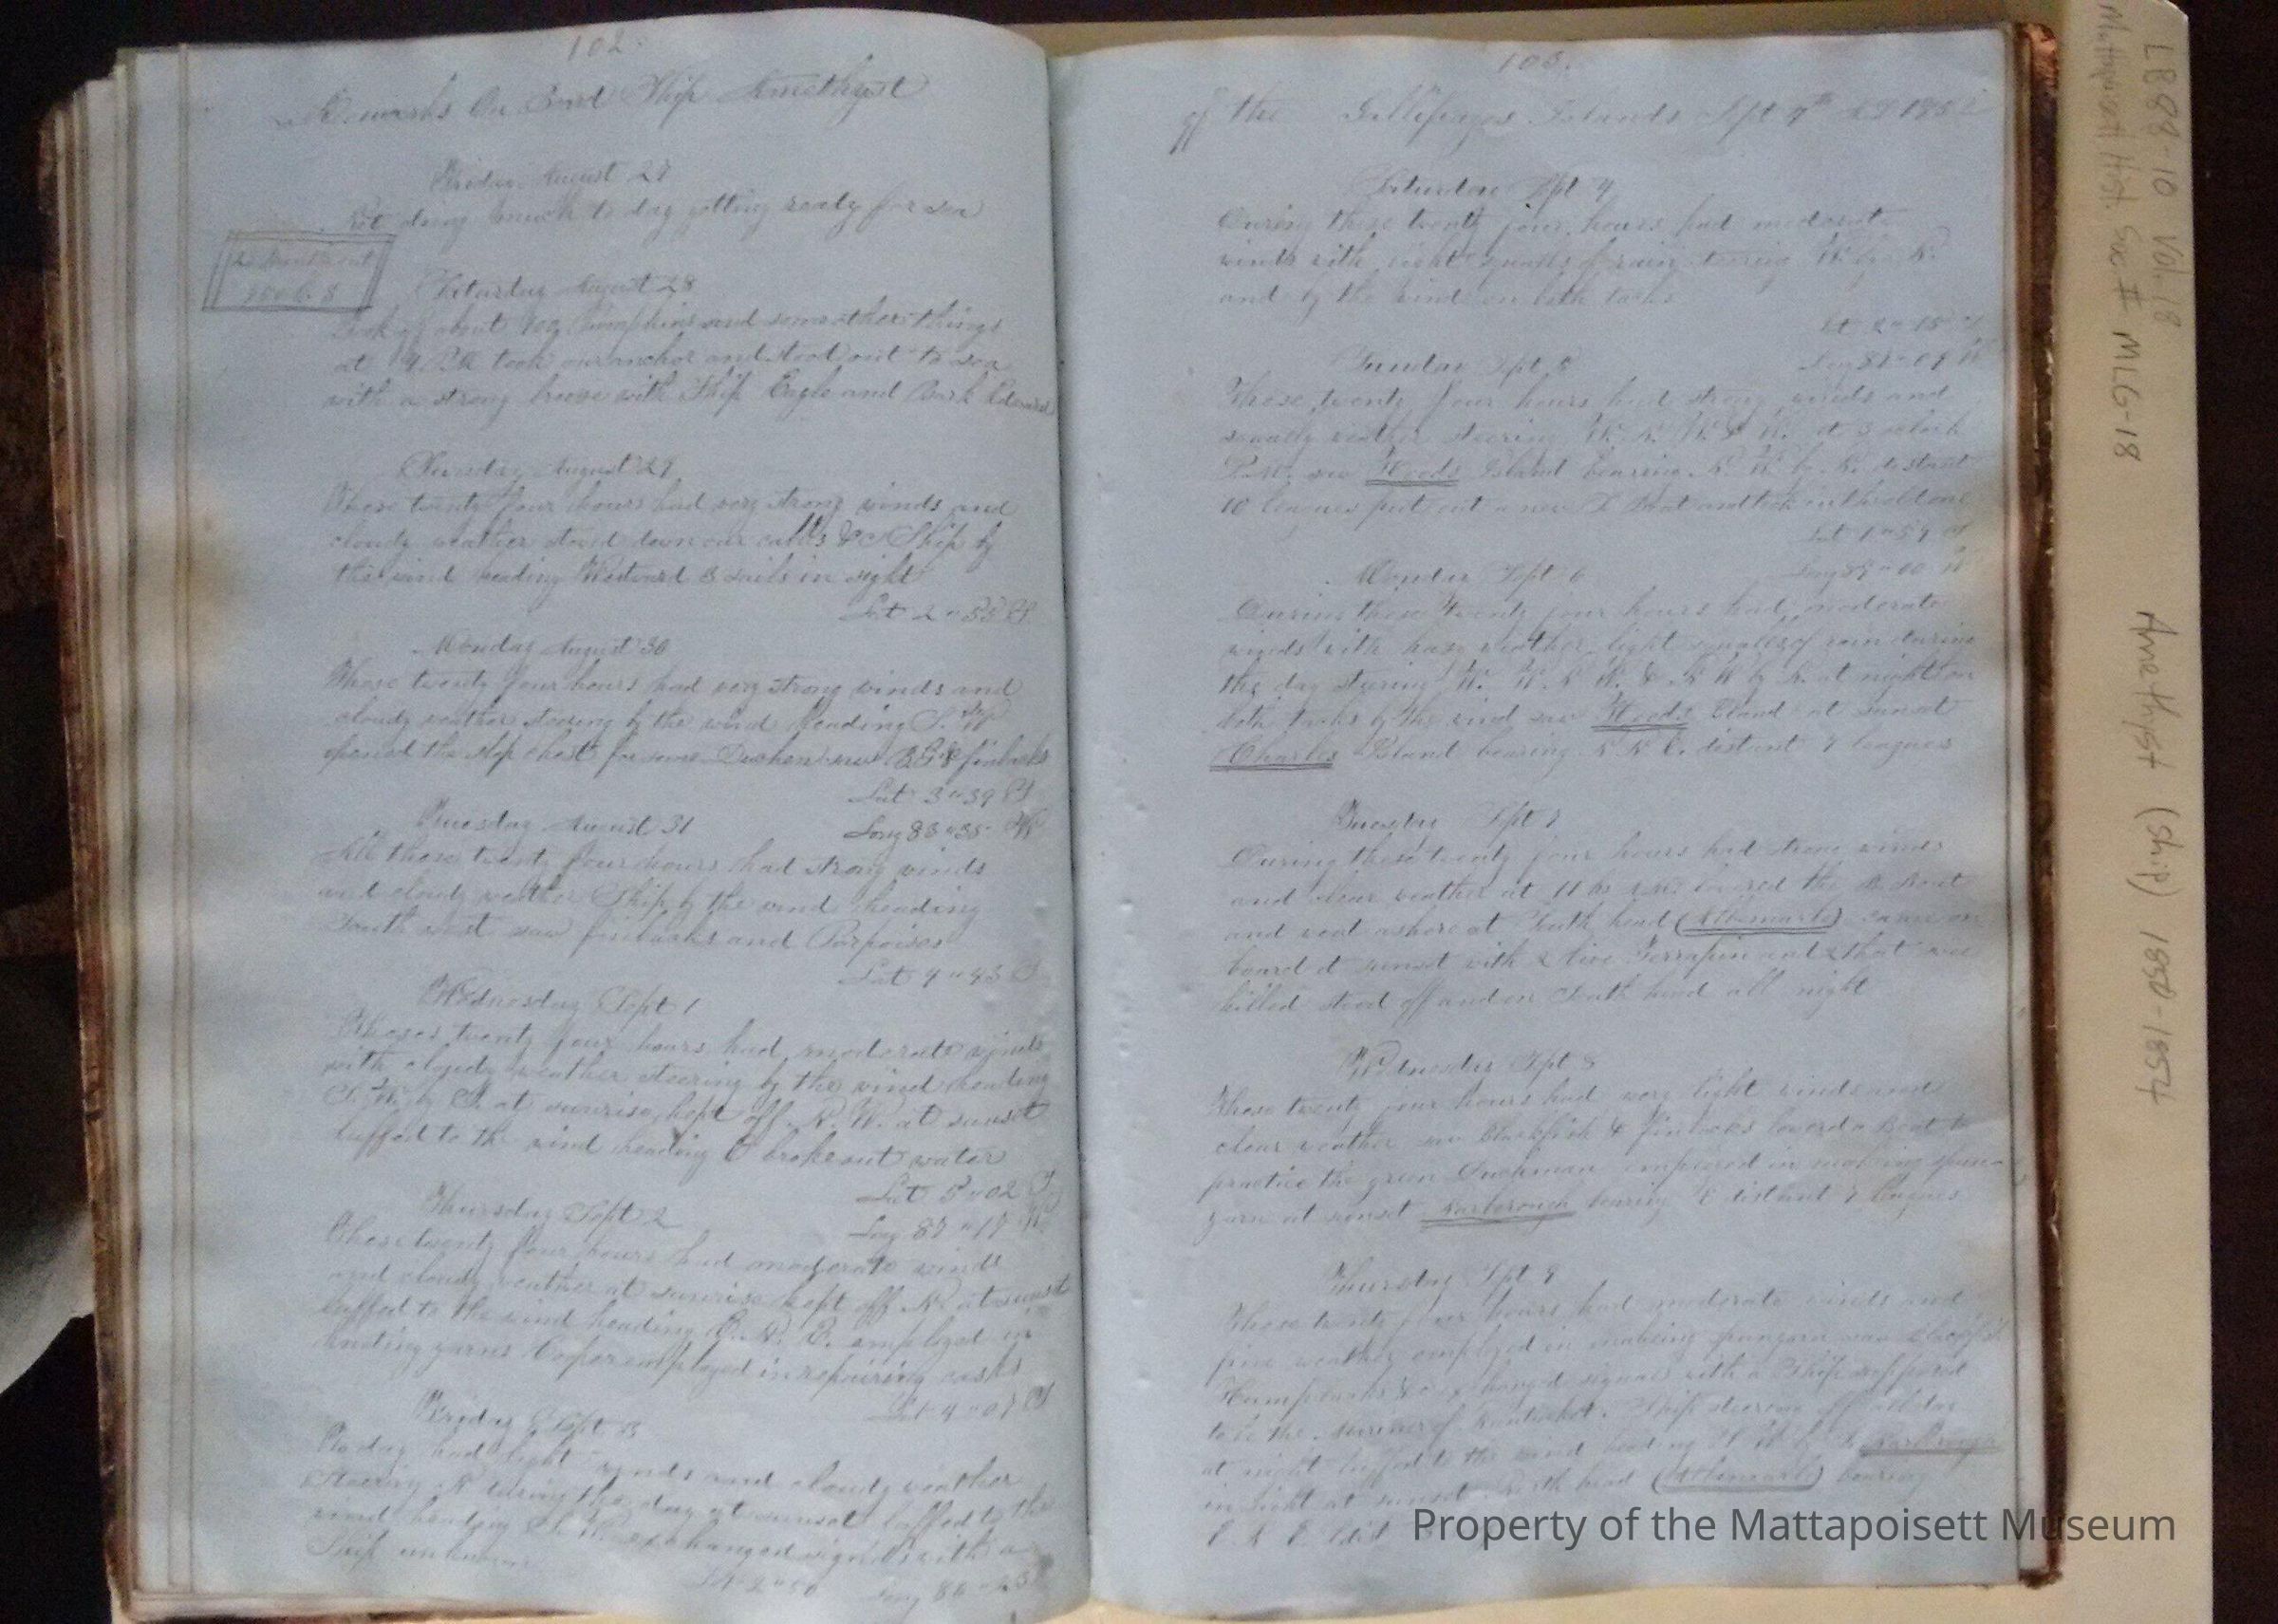 102.
Remarks On Board Ship Amethyst
Friday August 27
Not doing much to day getting ready for sea
Saturday August 28
Took off about 400 Pumpkins and some other things
at 4 PM took our anchor and stood out to sea
with a strong breeze with Ship Eagle and Bark Edward
Sunday August 29
These twenty four hours had very strong winds and
cloudy weather stowed down our casks &c Ship by
the wind heading Westward 3 sails in sight
Lat 2 " 55 S
Monday August 30
These twenty four hours had very strong winds and
cloudy weather steering by the wind heading S. W
opened the slop chest for some saw finbacks
Lat 3 " 39 S
Tuesday August 31
Long 83 " 35 W
All these twenty four hours had strong winds
and cloudy weather Ship by the wind heading
South west saw finbacks and Porpoises
Lat 4 " 43 S
Wednesday Sept 1
These twenty four hours had moderate winds
with cloudy weather steering by the wind heading
S. W. by S. at sunrise kept off N. W. at sunset
luffed to the wind heading E broke out water
Lat 5 " 02 S
Thursday Sept 2
Long 87 " 17 W
These twenty four hours had moderate winds
and cloudy weather at sunrise kept off N. at sunset
luffed to the wind heading E. N. E. employed in
knoting yarns Cooper employed in repairing casks
Lat 4 " 07 S
Friday Sept 3
To day had light winds and cloudy weather
steering N during the day at sunset luffed to the
wind heading exchanged signals with a
Ship unknown
Lat 2 " 50 Long 86 "
103.
off the Gallipagos Islands Sept 4th AD 185
Saturday Sept 4
During these twenty four hours had moderate
winds with light squalls of rain steering W. by N.
and by the wind on both tacks
Lat 2 " 15 S
Sunday Sept 5
Long 87 " 09 W
These twenty four hours had strong winds and
squally weather steering W. N. W & W. at 3 oclock
saw Hoods Island bearing N W by N. distant
10 leagues put out a new Boat and took in the old one
Lat 1 " 59 S
Monday Sept 6
Long 89 " 00 W
During these twenty four hours had moderate
winds with hazy weather light squalls of rain during
the day steering W. W N W. & N W by N. at night on
both tacks by the wind saw Hoods Island at sunset
Charles Island bearing N N E. distant 7 leagues
Tuesday Sept 7
During these twenty four hours had strong winds
and clear weather at 11 lowered the Boat
and went ashore at South head (Albemarle) came on
board at sunset with 2 live Terrapin and 2 that was
killed stood off and on South head all night
Wednesday Sept 8
These twenty four hours had very light winds and
clear weather saw Blackfish & finbacks lowered a Boat to
practice the green employed in making spun
yarn at sunset Narborough bearing E distant 7 leagues
Thursday Sept 9
These twenty four hours had moderate winds and
fine weather employed in making spunyarn saw
Humpbacks &c exchanged signals with a Ship supposed
to be the Mariner of Nantucket. Ship steering off all day
at night luffed to the wind heading Narborough
in sight at sunset North head (Albemarle) bearing
E. N E.
L B 09-10 Vol. 18
Mattapoisett Hist. Soc. II MLG-18
Amethyst (ship) 1850-1854
Property of the Mattapoisett Museum